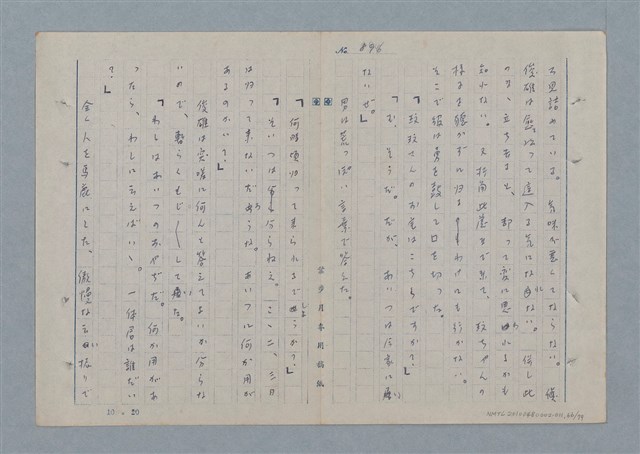 No. 896
る見詰めている。気味が悪くてならない。俊
俊雄は金、ねって這入る気になれない。何し此
のまゝ立ち去ると、却って変に思われるかも
知れない。又折角此処まで来て、玖ちゃんの
様子も聴かずに帰るわけにも行かない。
そこで彼は勇を鼓して口を切った。
「玖玖さんのお宅はこちらですか？」
「む、そうだ。だが、あいつは今家に居
ないぜ。」
男は荒っぽい言葉で答えた。
龍步月專用稿紙
「何時頃帰って来られますでしょうか？」
「そいつは分らねえ。こゝ二、三日
は帰って来ないだろうね。あいつに何か用が
あるのかい？」
俊雄は突嗟に何んと答えてよいか分らな
いので、暫らくもじ〳〵して居た。
「わしはあいつのおやぢだ。何か用があ
ったら、わしに云えばいゝ。一体君は誰だい
？」
全く人を馬鹿にした、傲慢な云い振りで
10 × 20
NMTL